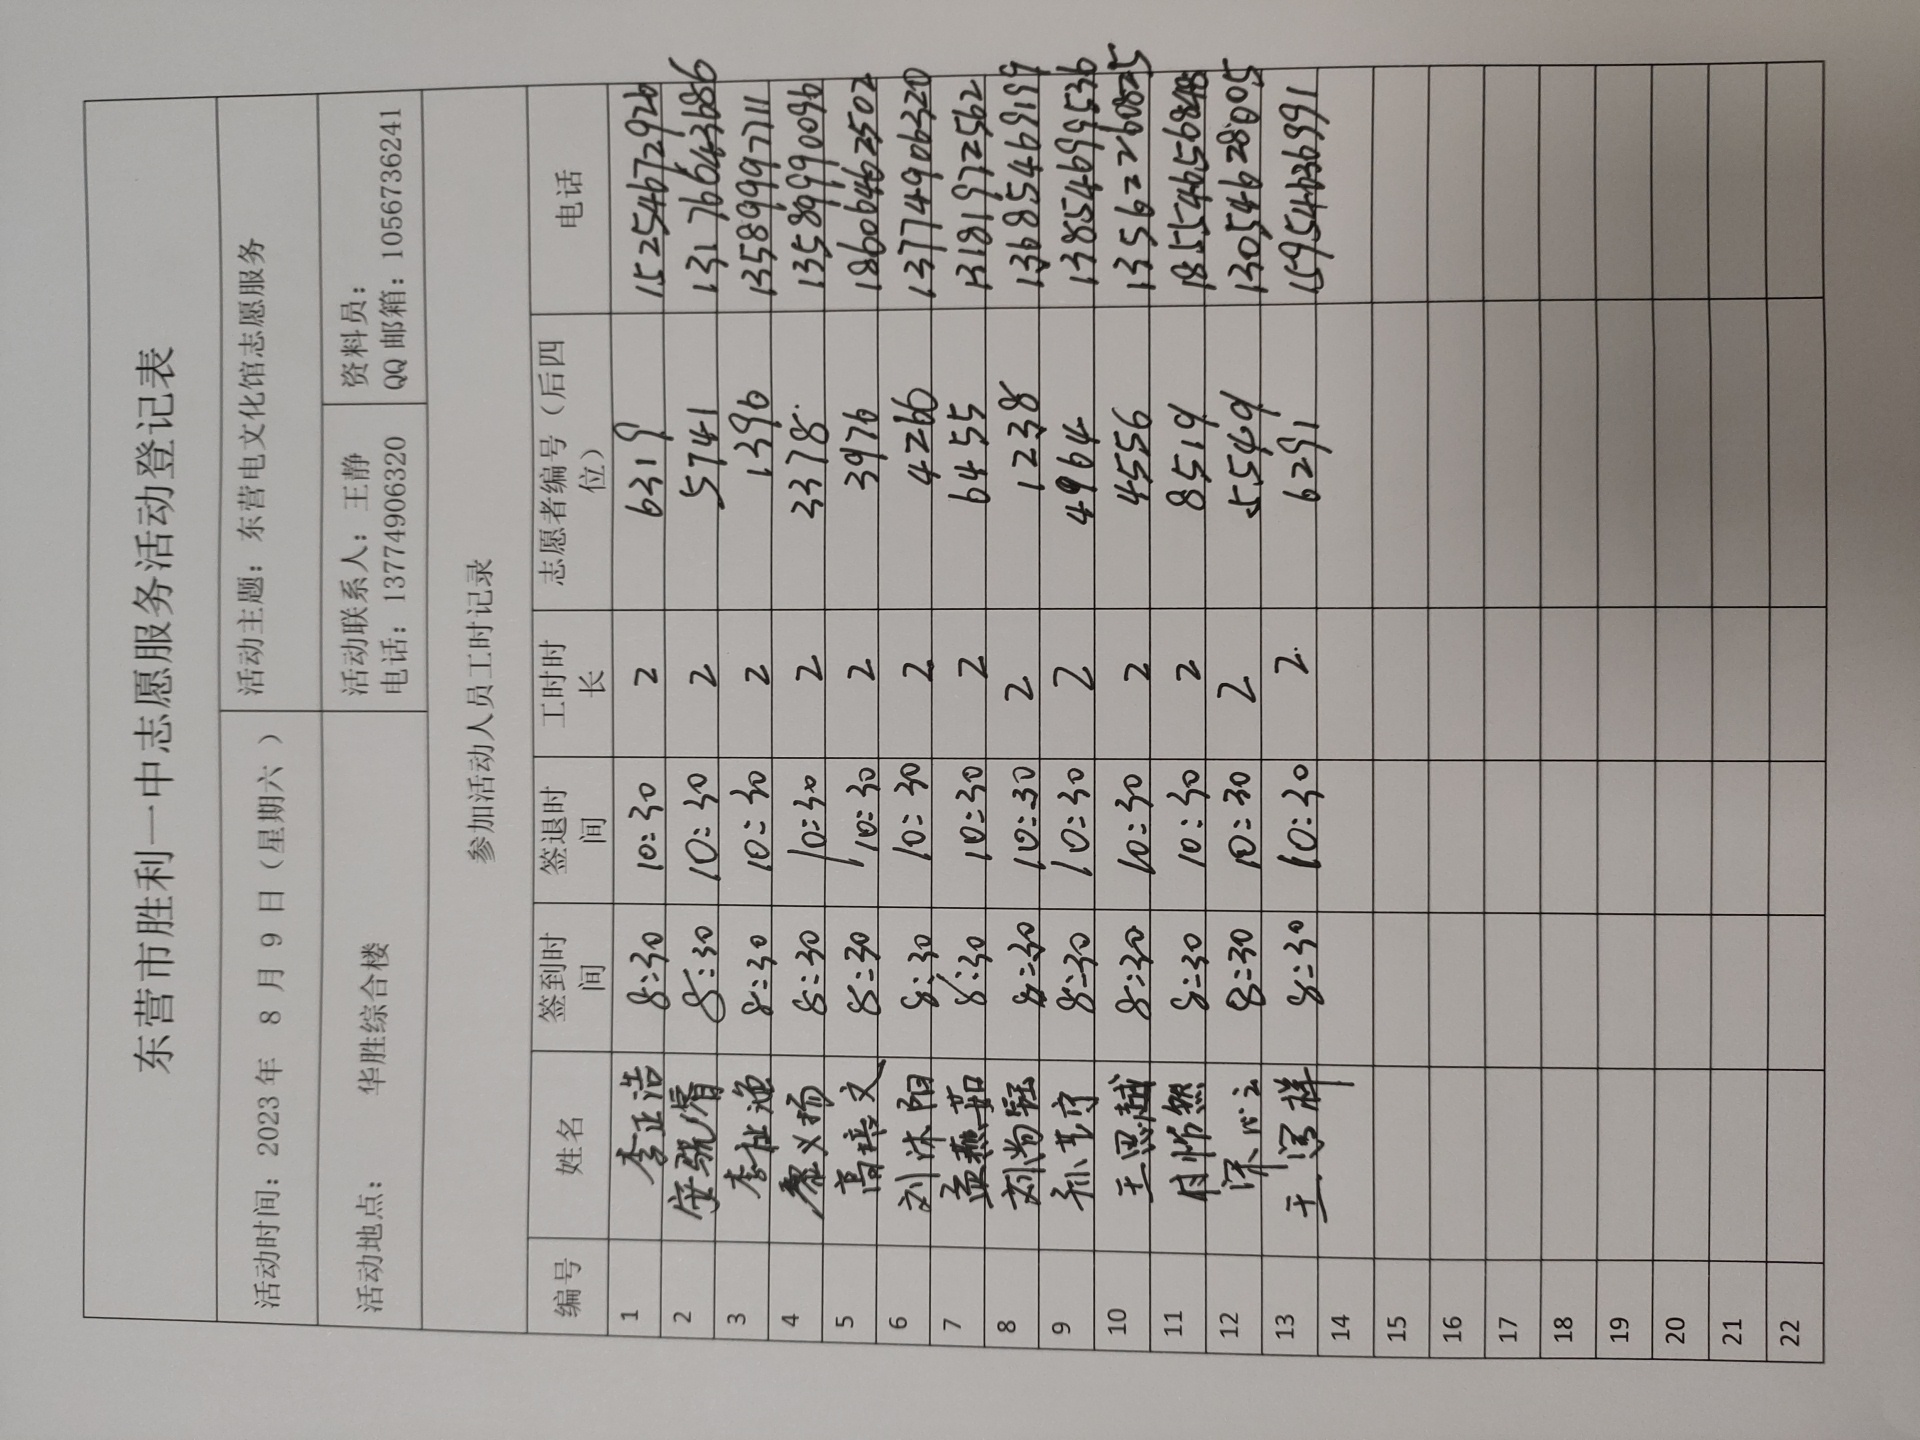 东营市胜利一中志愿服务活动登记表
活动时间：2023 年 8 月 9 日（星期六 ） 活动主题：东营电文化馆志愿服务
活动地点： 华胜综合楼 活动联系人：王静 电话：13774906320 资料员： QQ 邮箱：1056736241
参加活动人员工时记录
编号 姓名 签到时间 签退时间 工时时长 志愿者编号（后四位） 电话
1 李正浩 8:30 10:30 2 6319 15254672926
2 8:30 10:30 2 5741 13176643686
3 8:30 10:30 2 1396 13589997711
4 8:30 10:30 2 3378 13589990096
5 高培文 8:30 10:30 2 3976 18606462502
6 刘沐阳 8:30 10:30 2 4266 13774906320
7 孟燕茹 8:30 10:30 2 6455 13181972562
8 8:30 10:30 2 1238 13685469199
9 8:30 10:30 2 4964 13854699536
10 王思越 8:30 10:30 2 4556
11 8:30 10:30 2 8519
12 8:30 10:30 2 5549 13054628005
13 8:30 10:30 2 6291 15954636991
14
15
16
17
18
19
20
21
22